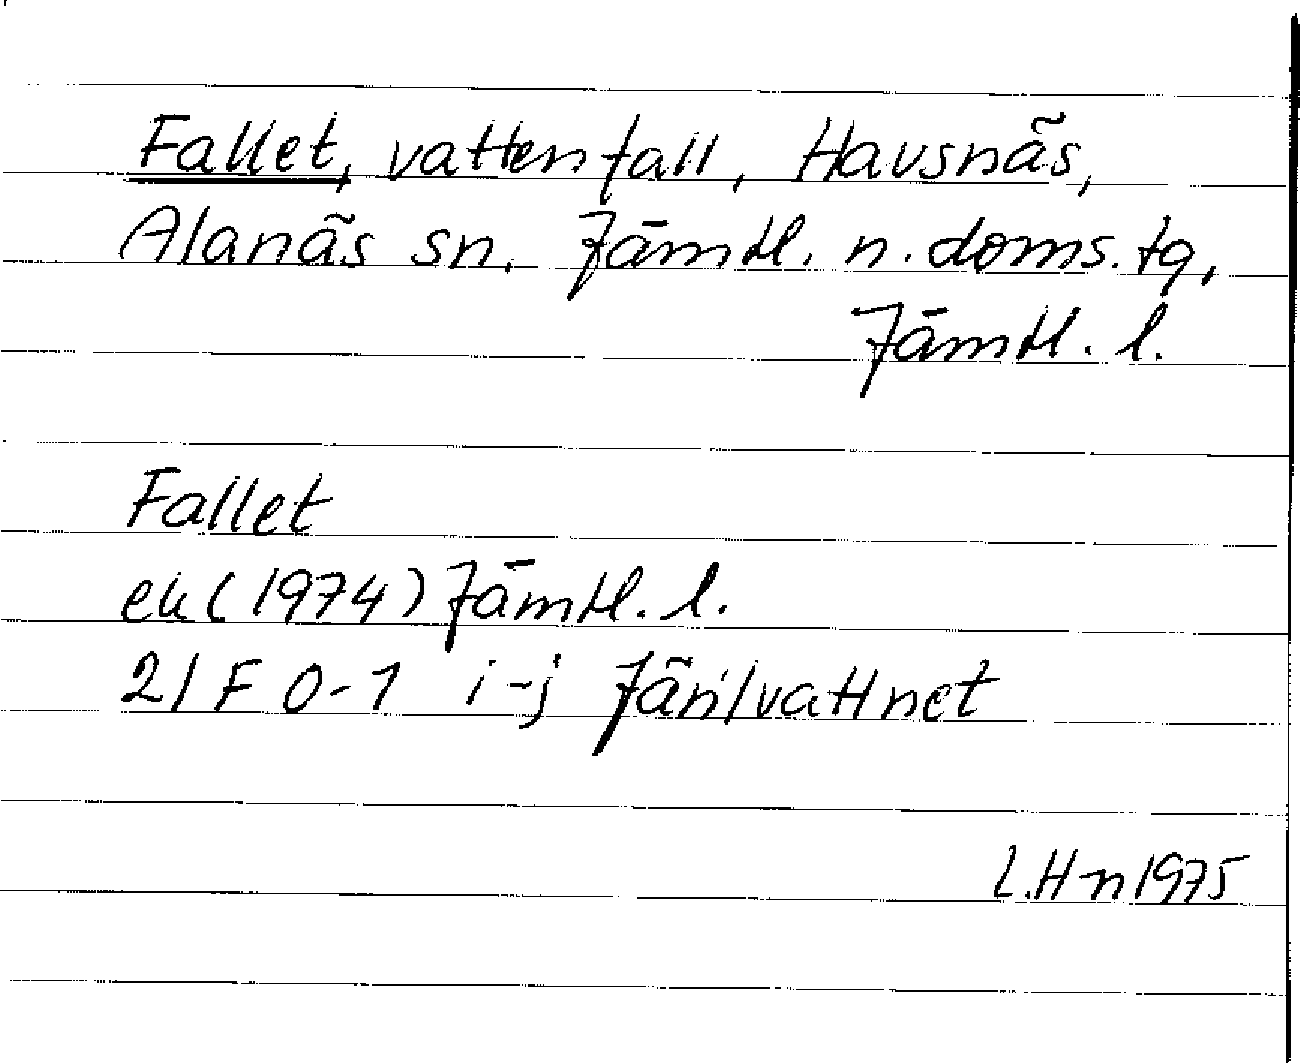 Fallet, vattenfall, Havsnäs,
Alanäs sn. Jämtl. n. doms. tg,
Jämtl. l.
Fallet
ek (1974) Jämtl. l.
21 F 0-1 i-j Järilvattnet
L.Hn 1975